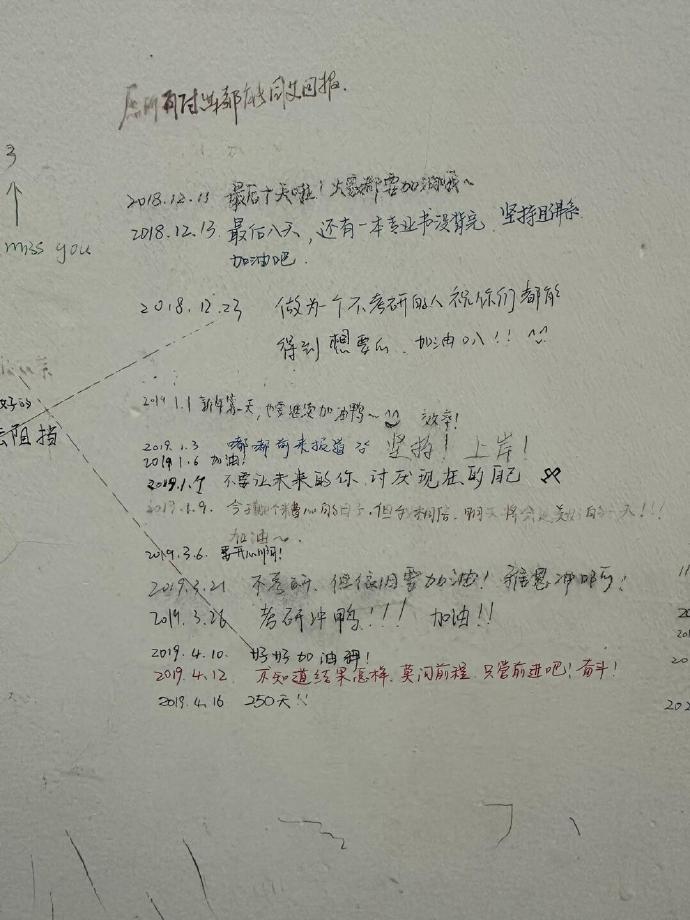 愿所有付出都有回报.
3
miss you
2018.12.11 最后十天啦！大家都要加油哦～
2018.12.13. 最后八天，还有一本专业书没背完. 坚持且佛系
加油吧.
2018.12.23 做为一个不考研的人祝你们都能
得到想要的、加油叭!! ^^
2019.1.1 新年第一天，也要继续加油鸭～ 效率！
好的
阻挡
2019.1.3 嘟嘟奇来报道 坚持！上岸！
2019.1.6 加油！
2019.1. 不要让未来的你，讨厌现在的自己
2019.1.9. 今天 糟心的日子，但我相信，明天将会是美好的一天!!!
加油～.
2019.3.6. 要开心啊!
2019.3.21 不考研，但依旧要加油！ 冲啊！
2019.3.26 考研冲鸭!!! 加油!!
2019.4.10. 好好加油啊!
2019.4.12. 不知道结果怎样，莫问前程，只管前进吧！奋斗！
2019.4.16 250天!!